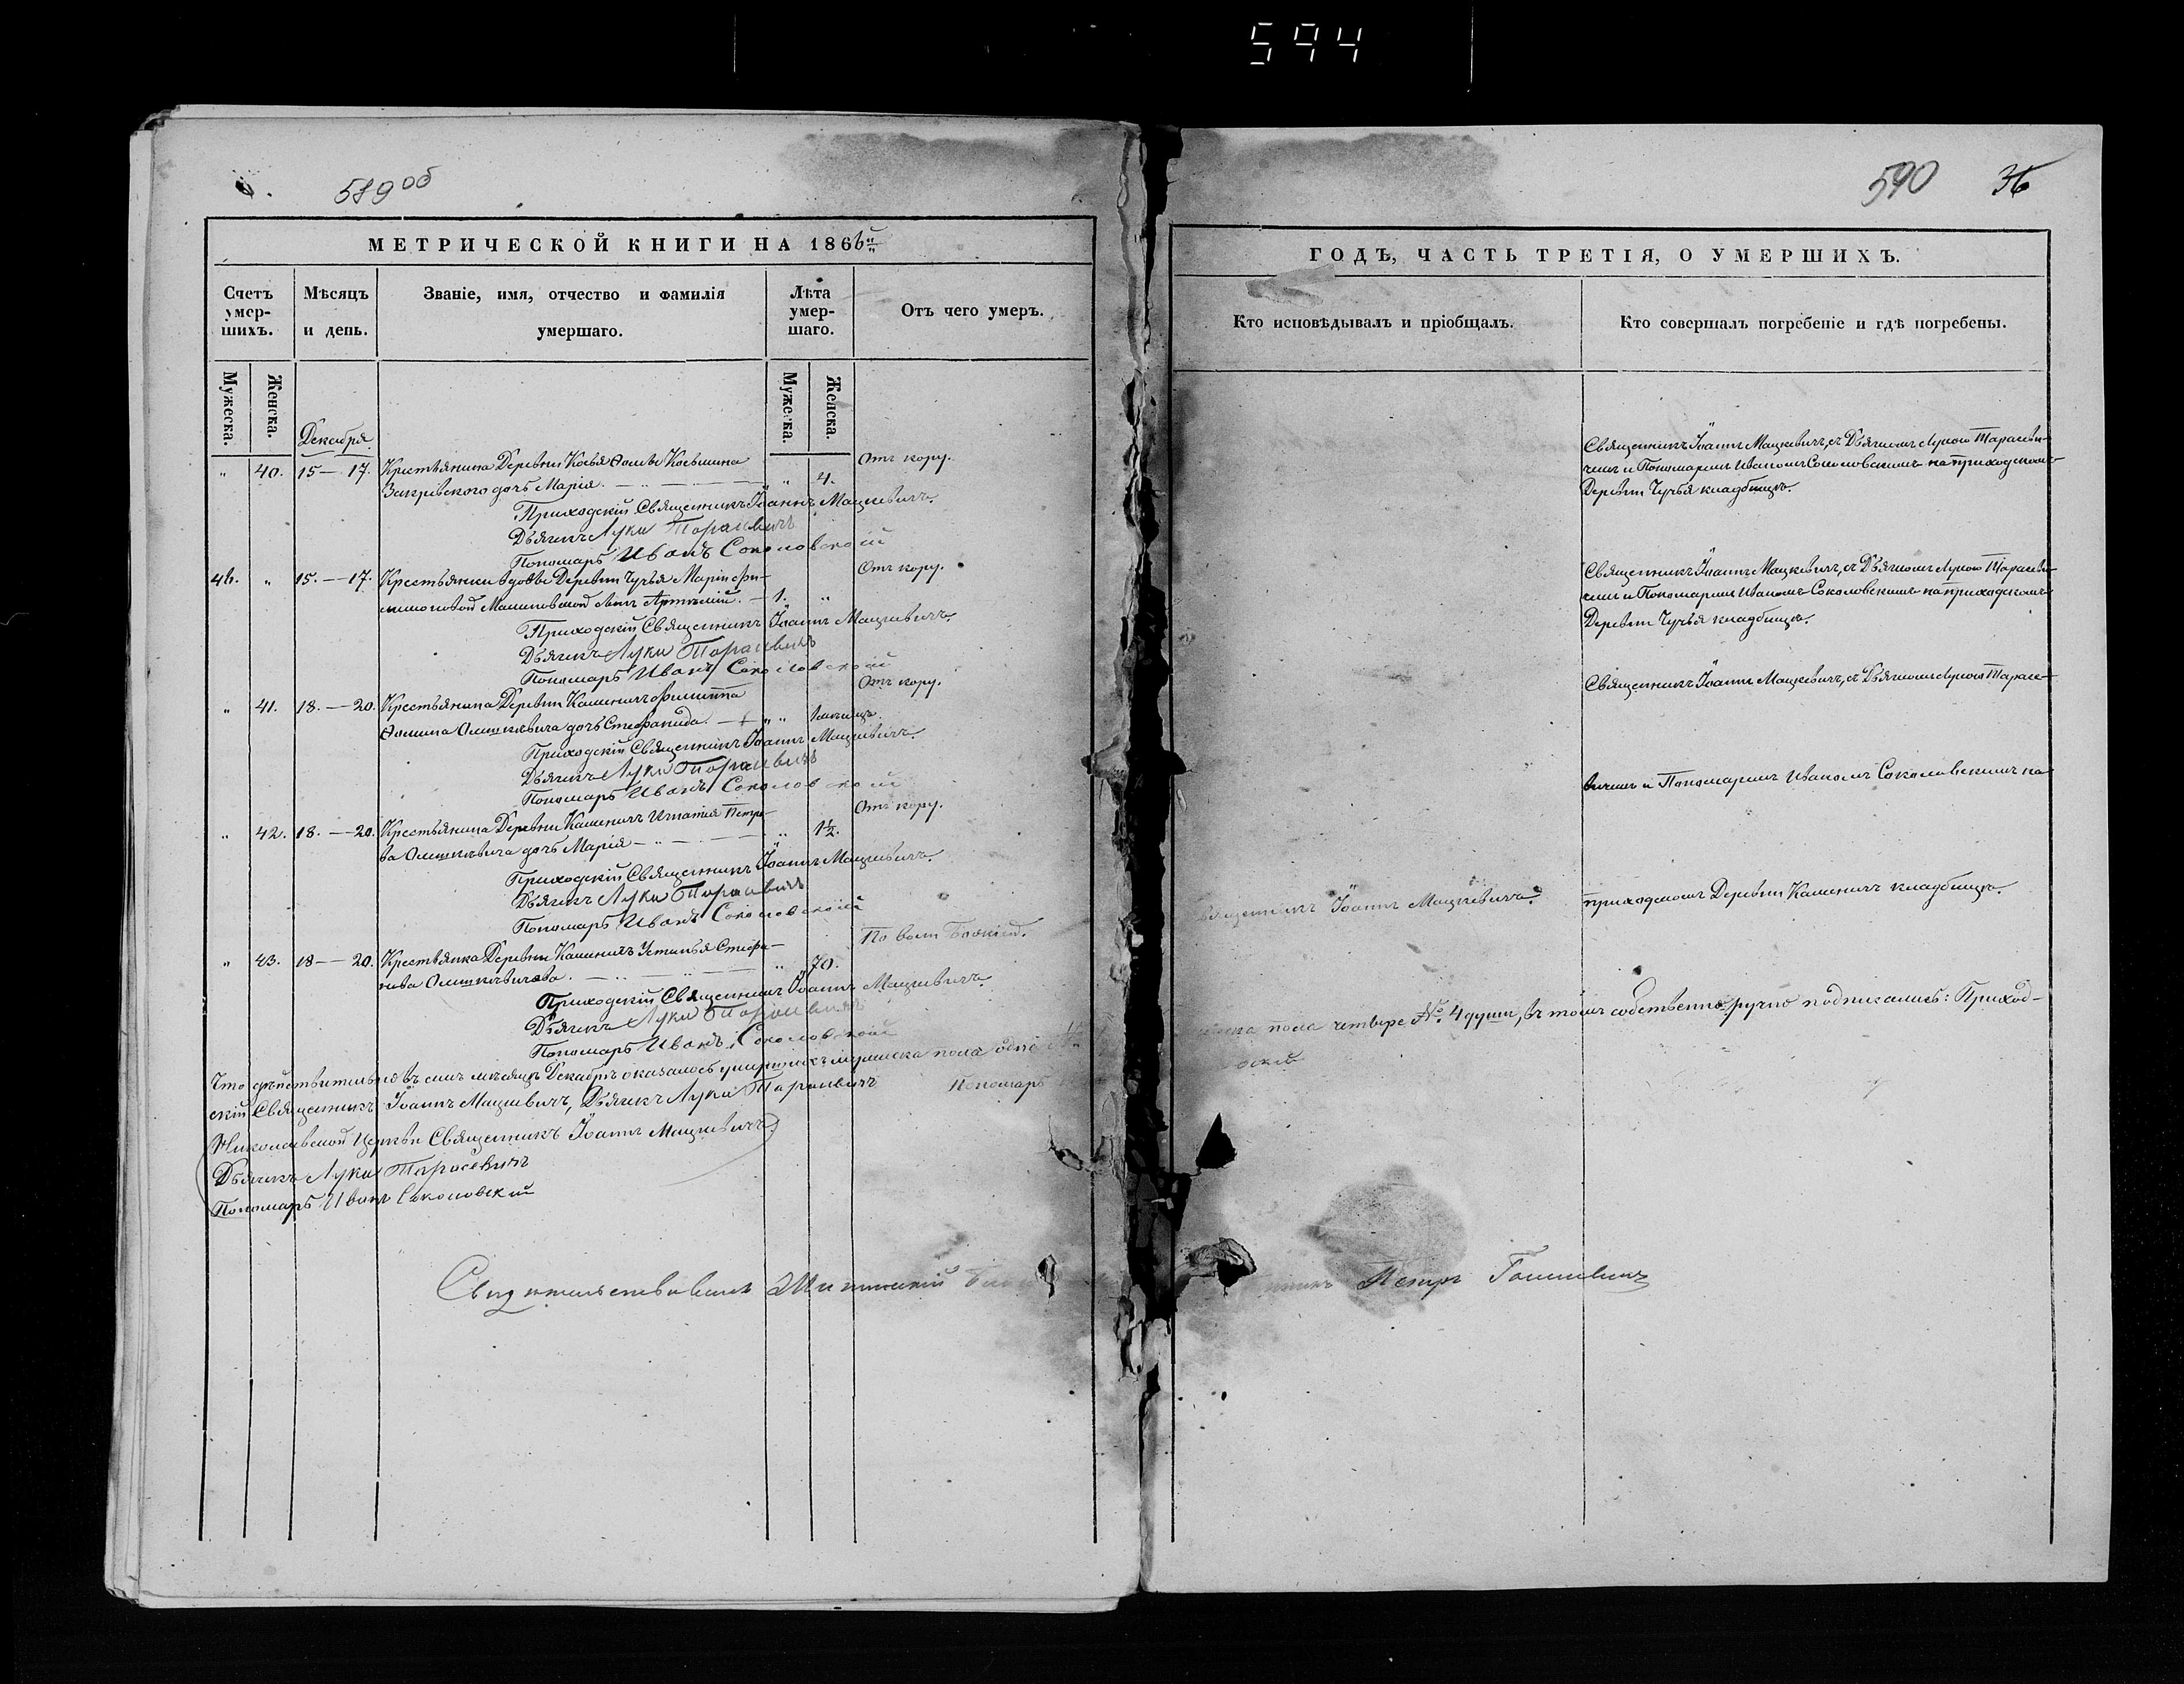 594
589 об
МЕТРИЧЕСКОЙ КНИГИ НА 1866й
Счетъ умер-шихъ.
Мѣсяцъ и день.
Званіе, имя, отчество и фамилія умершаго.
Лѣта умер-шаго.
Отъ чего умеръ.
Мужеска.
Женска.
Мужеска.
Женска.
Декабря.
" 40. 15—17. Крестьянина Деревни Косья Косьмина Отъ кору.
Закревского дочь Марія. " 4.
Приходскій Священникъ Іоаннъ Мацкевичъ.
Дьячекъ Лука Тарасевичъ
Пономарь Иванъ Соколовский
" 15.—17. Крестьянки вдовы Деревни Чучья Маріи Фи- Отъ кору.
Малиновской сынъ Артемій. — 1. "
Приходскій Священникъ Іоаннъ Мацкевичъ.
Дьячекъ Лука Тарасевичъ
Пономарь Иванъ Соколовский
" 41. 18.—20. Крестьянина Деревни Каменичъ Филиппа Отъ кору.
Ѳомина Олишкевича дочь Стефанида. " "
Приходскій Священникъ Іоаннъ Мацкевичъ.
Дьячекъ Лука Тарасевичъ
Пономарь Иванъ Соколовский
" 42. 18.—20. Крестьянина Деревни Каменичъ Игнатія Петро- Отъ кору.
ва Олишкевича дочь Марія " 1½.
Приходскій Священникъ Іоаннъ Мацкевичъ.
Дьячекъ Лука Тарасевичъ
Пономарь Иванъ Соколовский
" 43. 18—20. Крестьянка Деревни Каменичъ Устинья Стефа- По воли Божіей.
нова Олишкевичова. " 70.
Приходскій Священникъ Іоаннъ Мацкевичъ.
Дьячекъ Лука Тарасевичъ
Пономарь Иванъ Соколовский
Что дѣйствительно въ семъ мѣсяцѣ Декабрѣ оказалось умершихъ мужеска пола одна
скій Священникъ Іоаннъ Мацкевичъ, Дьячекъ Лука Тарасевичъ Пономарь
Николаевской Церкви Священникъ Іоаннъ Мацкевичъ
Дьячекъ Лука Тарасевичъ
Пономарь Иванъ Соколовский
Свидетельствовалъ
590 36
ГОДЪ, ЧАСТЬ ТРЕТІЯ, О УМЕРШИХЪ.
Кто исповѣдывалъ и пріобщалъ.
Кто совершалъ погребеніе и гдѣ погребены.
Священникъ Іоаннъ Мацкевичъ, съ Дьячкомъ Лукою Тарасеви-
чемъ и Пономаремъ Иваномъ Соколовскимъ на приходскомъ
Деревни Чучья кладбищѣ.
Священникъ Іоаннъ Мацкевичъ, съ Дьячкомъ Лукою Тарасеви-
чемъ и Пономаремъ Иваномъ Соколовскимъ на приходскомъ
Деревни Чучья кладбищѣ.
Священникъ Іоаннъ Мацкевичъ, съ Дьячкомъ Лукою Тарасе-
вичемъ и Пономаремъ Иваномъ Соколовскимъ на
Священникъ Іоаннъ Мацкевичъ.
приходскомъ Деревни Каменичъ кладбищѣ.
пола четыре № 4 души, въ томъ собственноручно подписались: Приход-
Петръ